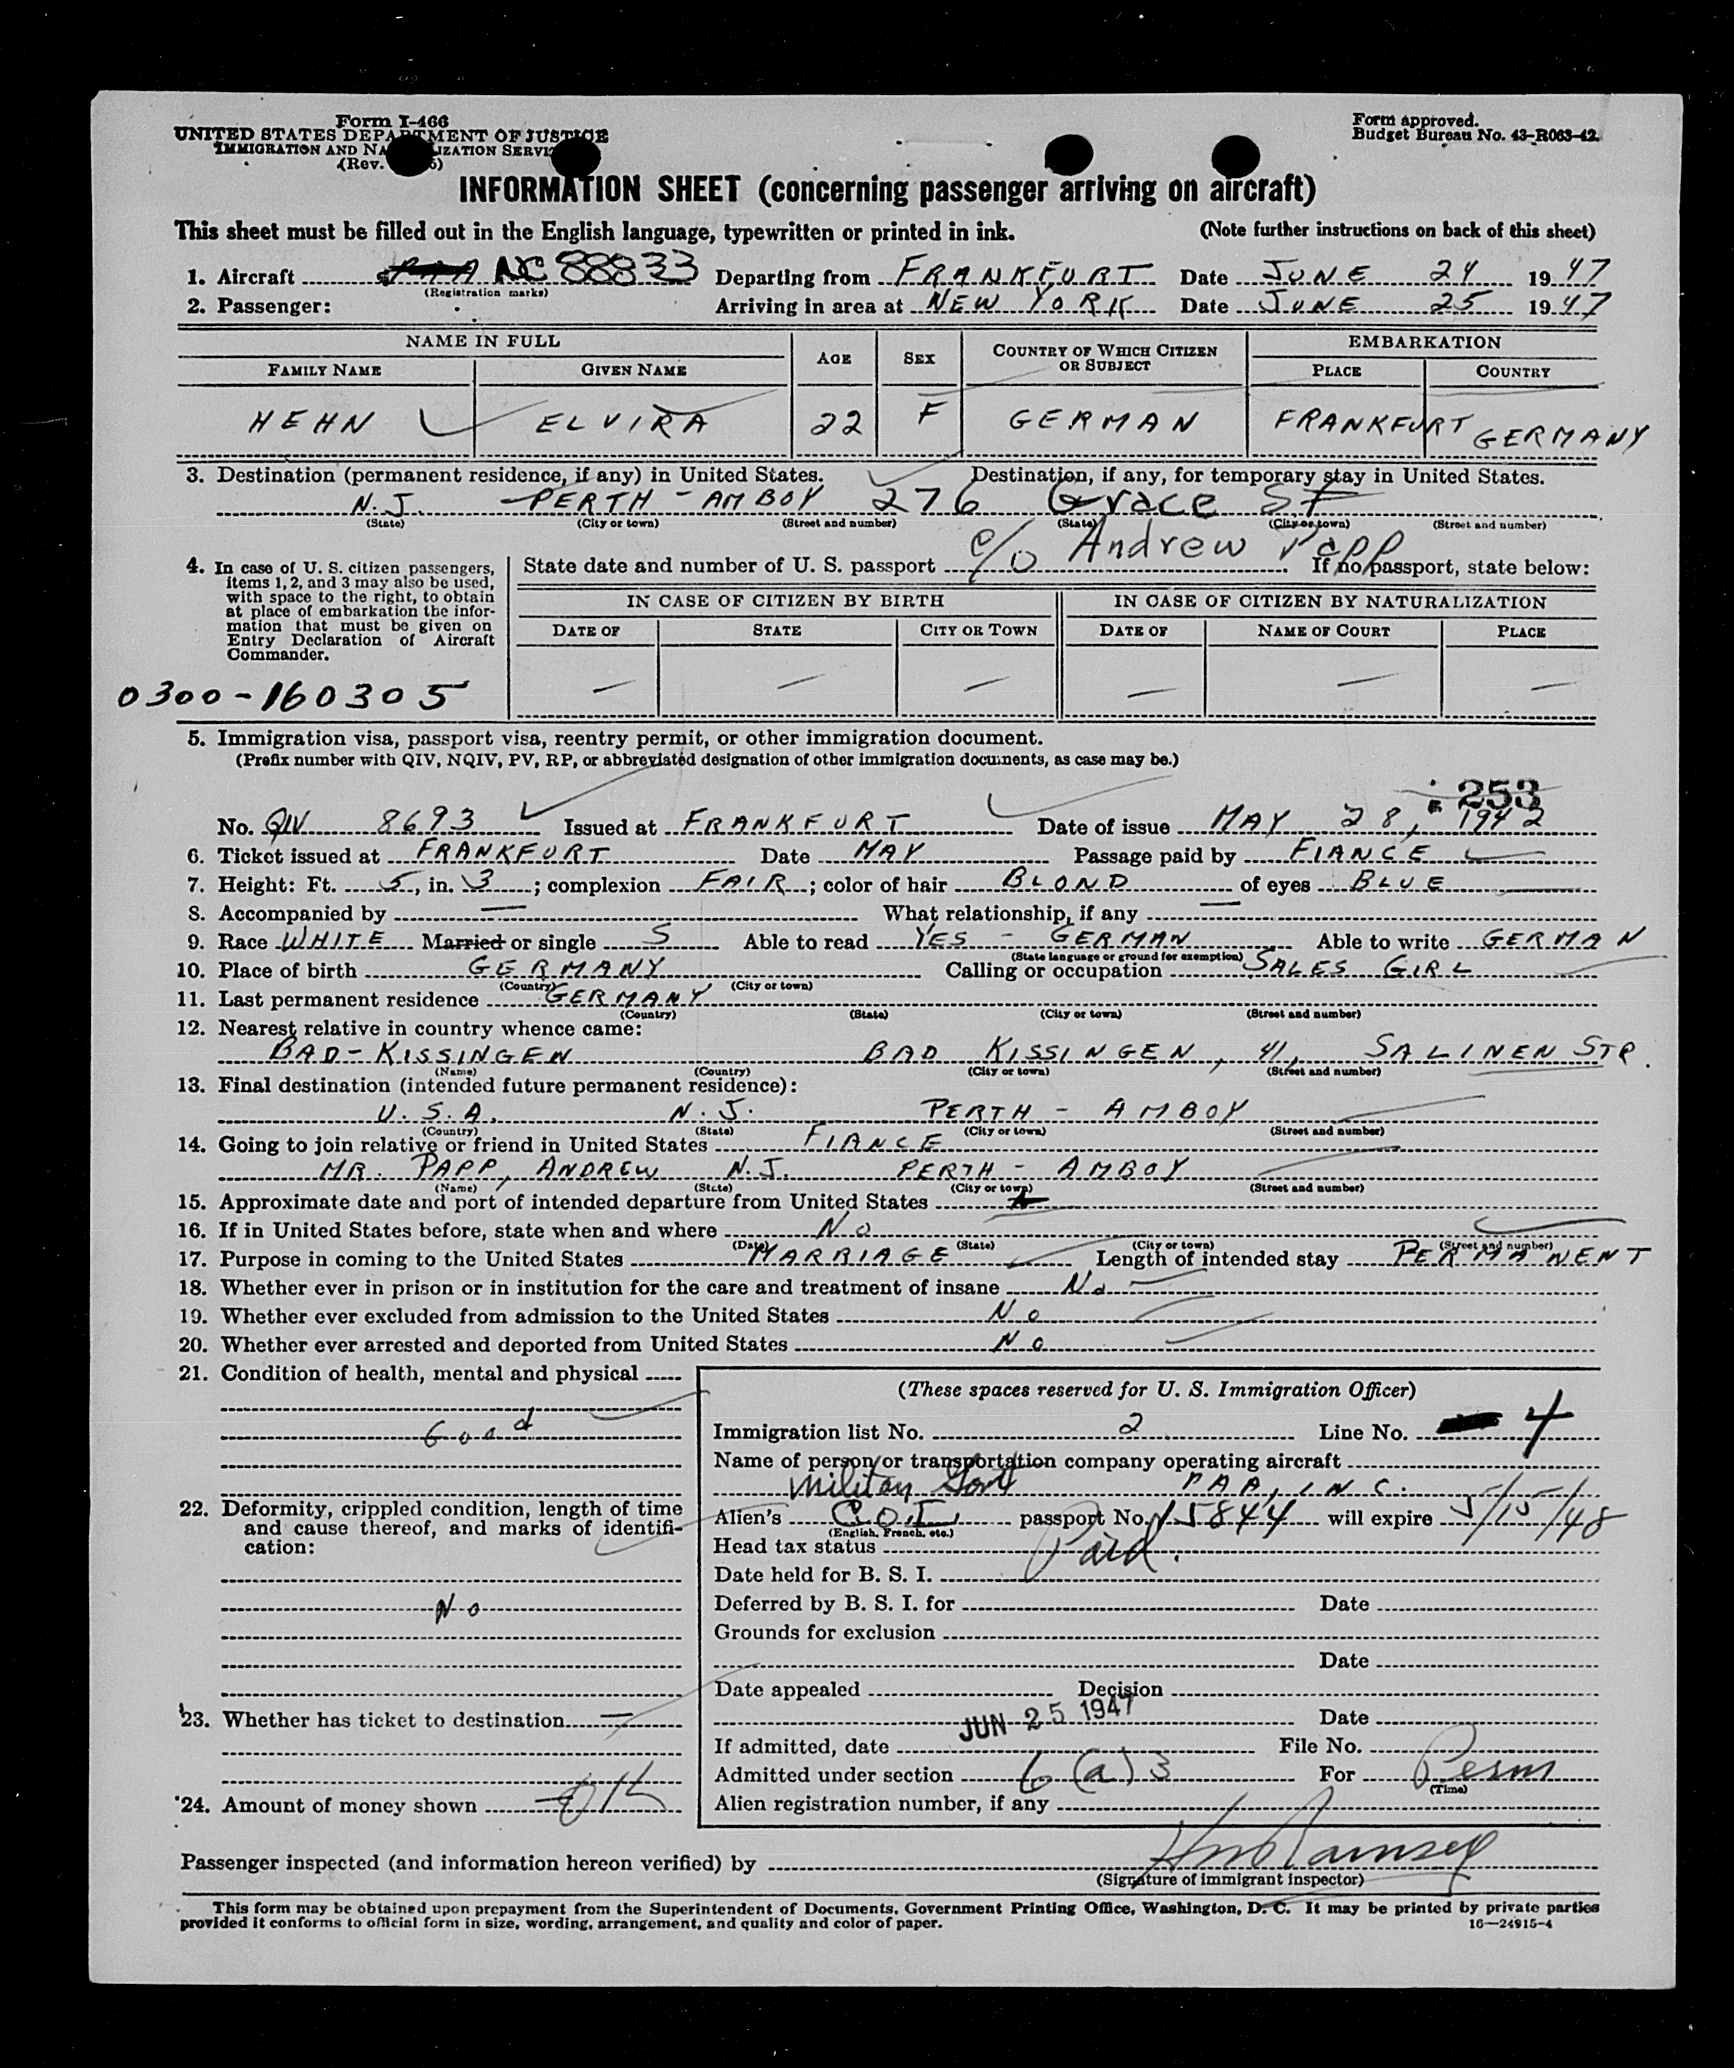 Form I-466
UNITED STATES DEPARTMENT OF JUSTICE
IMMIGRATION AND NATURALIZATION SERVICE
(Rev.
Form approved.
Budget Bureau No. 43-R063-42.
INFORMATION SHEET (concerning passenger arriving on aircraft)
This sheet must be filled out in the English language, typewritten or printed in ink. (Note further instructions on back of this sheet)
1. Aircraft NC 88833 Departing from FRANKFURT Date JUNE 24 1947
(Registration marks)
2. Passenger: Arriving in area at NEW YORK Date JUNE 25 1947
NAME IN FULL AGE SEX COUNTRY OF WHICH CITIZEN OR SUBJECT EMBARKATION
FAMILY NAME GIVEN NAME PLACE COUNTRY
HEHN ELVIRA 22 F GERMAN FRANKFURT GERMANY
3. Destination (permanent residence, if any) in United States. Destination, if any, for temporary stay in United States.
N.J. PERTH - AMBOY 276 Grace St
(State) (City or town) (Street and number) (State) (City or town) (Street and number)
c/o Andrew Papp
4. In case of U. S. citizen passengers, items 1, 2, and 3 may also be used, with space to the right, to obtain at place of embarkation the information that must be given on Entry Declaration of Aircraft Commander.
State date and number of U. S. passport If no passport, state below:
IN CASE OF CITIZEN BY BIRTH IN CASE OF CITIZEN BY NATURALIZATION
DATE OF STATE CITY OR TOWN DATE OF NAME OF COURT PLACE
— — — — — —
0300-160305
5. Immigration visa, passport visa, reentry permit, or other immigration document.
(Prefix number with QIV, NQIV, PV, RP, or abbreviated designation of other immigration documents, as case may be.)
253
No. QIV 8693 Issued at FRANKFURT Date of issue MAY 28, 1942
6. Ticket issued at FRANKFURT Date MAY Passage paid by FIANCE
7. Height: Ft. 5, in. 3; complexion FAIR; color of hair BLOND of eyes BLUE
8. Accompanied by — What relationship, if any —
9. Race WHITE Married or single S Able to read YES - GERMAN Able to write GERMAN
(State language or ground for exemption)
10. Place of birth GERMANY Calling or occupation SALES GIRL
(Country) (City or town)
11. Last permanent residence GERMANY
(Country) (State) (City or town) (Street and number)
12. Nearest relative in country whence came:
BAD-KISSINGEN BAD KISSINGEN, 41, SALINEN STR.
(Name) (Country) (City or town) (Street and number)
13. Final destination (intended future permanent residence):
U.S.A. N.J. PERTH - AMBOY
(Country) (State) (City or town) (Street and number)
14. Going to join relative or friend in United States FIANCE
MR. PAPP, ANDREW N.J. PERTH - AMBOY
(Name) (State) (City or town) (Street and number)
15. Approximate date and port of intended departure from United States
16. If in United States before, state when and where NO
(Date) (State) (City or town) (Street and number)
17. Purpose in coming to the United States MARRIAGE Length of intended stay PERMANENT
18. Whether ever in prison or in institution for the care and treatment of insane No
19. Whether ever excluded from admission to the United States NO
20. Whether ever arrested and deported from United States NO
21. Condition of health, mental and physical
Good
22. Deformity, crippled condition, length of time and cause thereof, and marks of identification:
No
23. Whether has ticket to destination —
24. Amount of money shown OK
(These spaces reserved for U. S. Immigration Officer)
Immigration list No. 2 Line No. 4
Name of person or transportation company operating aircraft
Military Govt PAA, INC.
Alien's C.O.I. passport No. 15844 will expire 5/15/48
(English, French, etc.)
Head tax status Paid.
Date held for B. S. I.
Deferred by B. S. I. for Date
Grounds for exclusion
Date
Date appealed Decision
JUN 25 1947 Date
If admitted, date File No.
Admitted under section 6(a)3 For Perm
(Time)
Alien registration number, if any
Passenger inspected (and information hereon verified) by
(Signature of immigrant inspector)
This form may be obtained upon prepayment from the Superintendent of Documents, Government Printing Office, Washington, D. C. It may be printed by private parties
provided it conforms to official form in size, wording, arrangement, and quality and color of paper. 16—24915-4